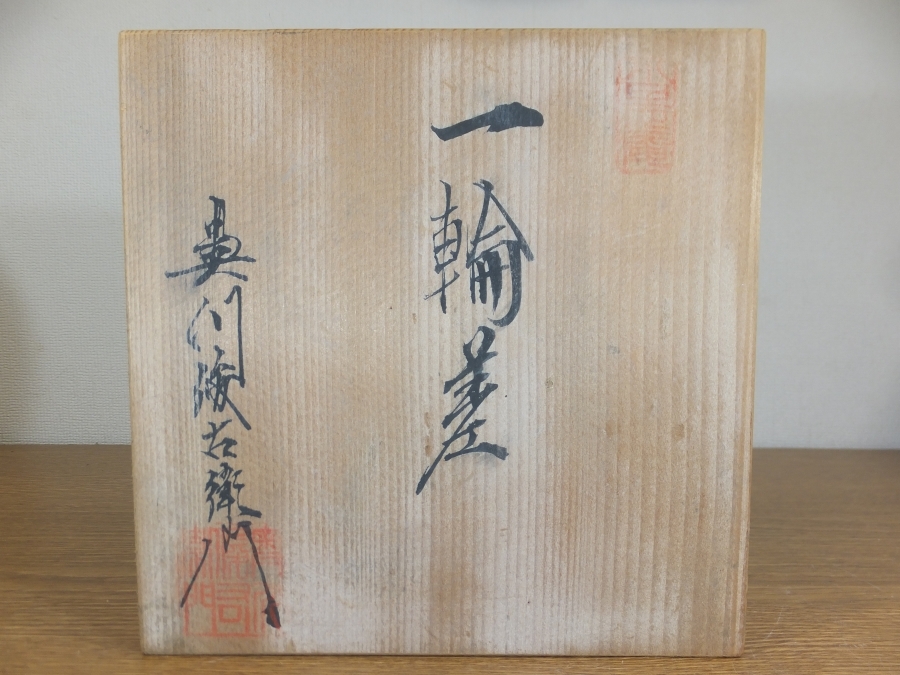 一輪差
奥川俊右衛門